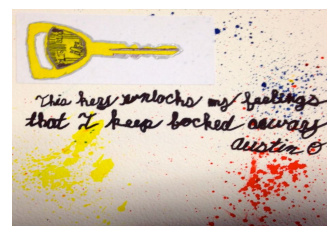 This key unlocks my feelings
that I keep locked away
Austin O